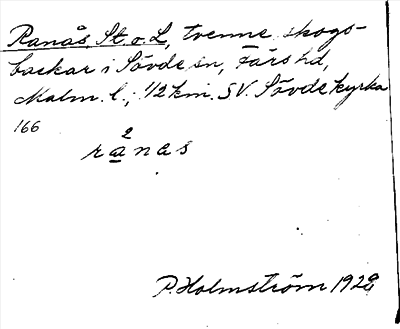 Ranås, St. o. L., tvenne skogs-
backar i Sövde sn, Färs hd,
Malm. l.; 1/2 km. SV. Sövde kyrka
166
2
ranas
P. Holmström 1929